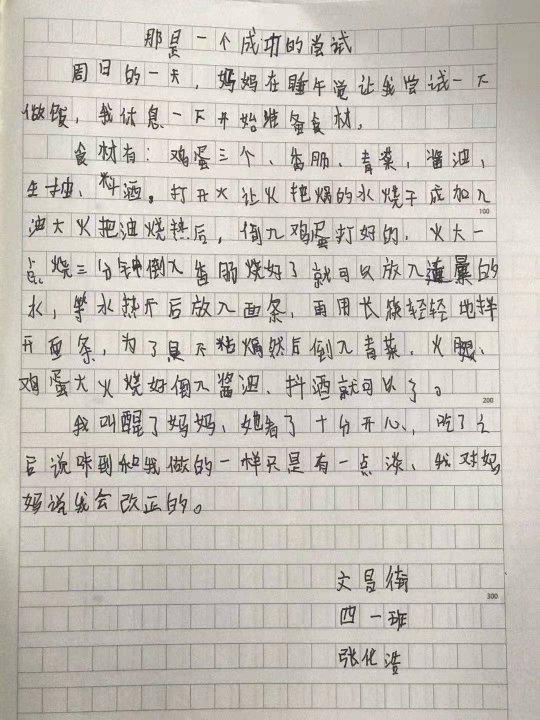 那是一个成功的尝试
周日的一天，妈妈在睡午觉让我尝试一下
做饭，我休息一下开始准备食材，
食材有：鸡蛋三个、香肠、青菜，酱油，
生抽、料酒。打开火让火把锅的水烧干底加入
100
油大火把油烧热后，倒入鸡蛋打好的，火大一
点烧三分钟倒入香肠烧好了就可以放入适量的
水，等水热开后放入面条，再用长筷轻轻地拌
开面条，为了是不粘锅然后倒入青菜、火腿、
鸡蛋大火烧好倒入酱油、料酒就可以了。
200
我叫醒了妈妈、她看了十分开心，吃了之
后说味到和我做的一样只是有一点淡、我对妈
妈说我会改正的。
文昌街
300
四一班
张化浩